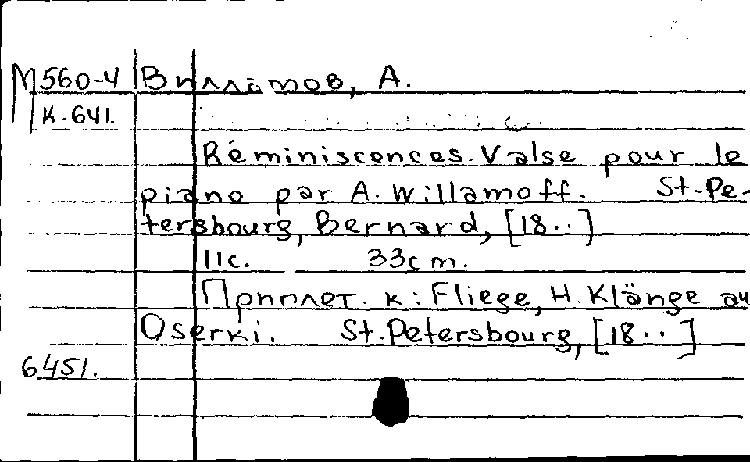 М560-4 Вилламов, А.
К-641.
Réminiscences. Valse pour le
piano par A. Willamoff. St.-Pe-
tersbourg, Bernard, [18..]
11с. 33cm.
Приплет. к: Fliege, H. Klänge au
Oserki. St. Petersbourg, [18..]
6451.